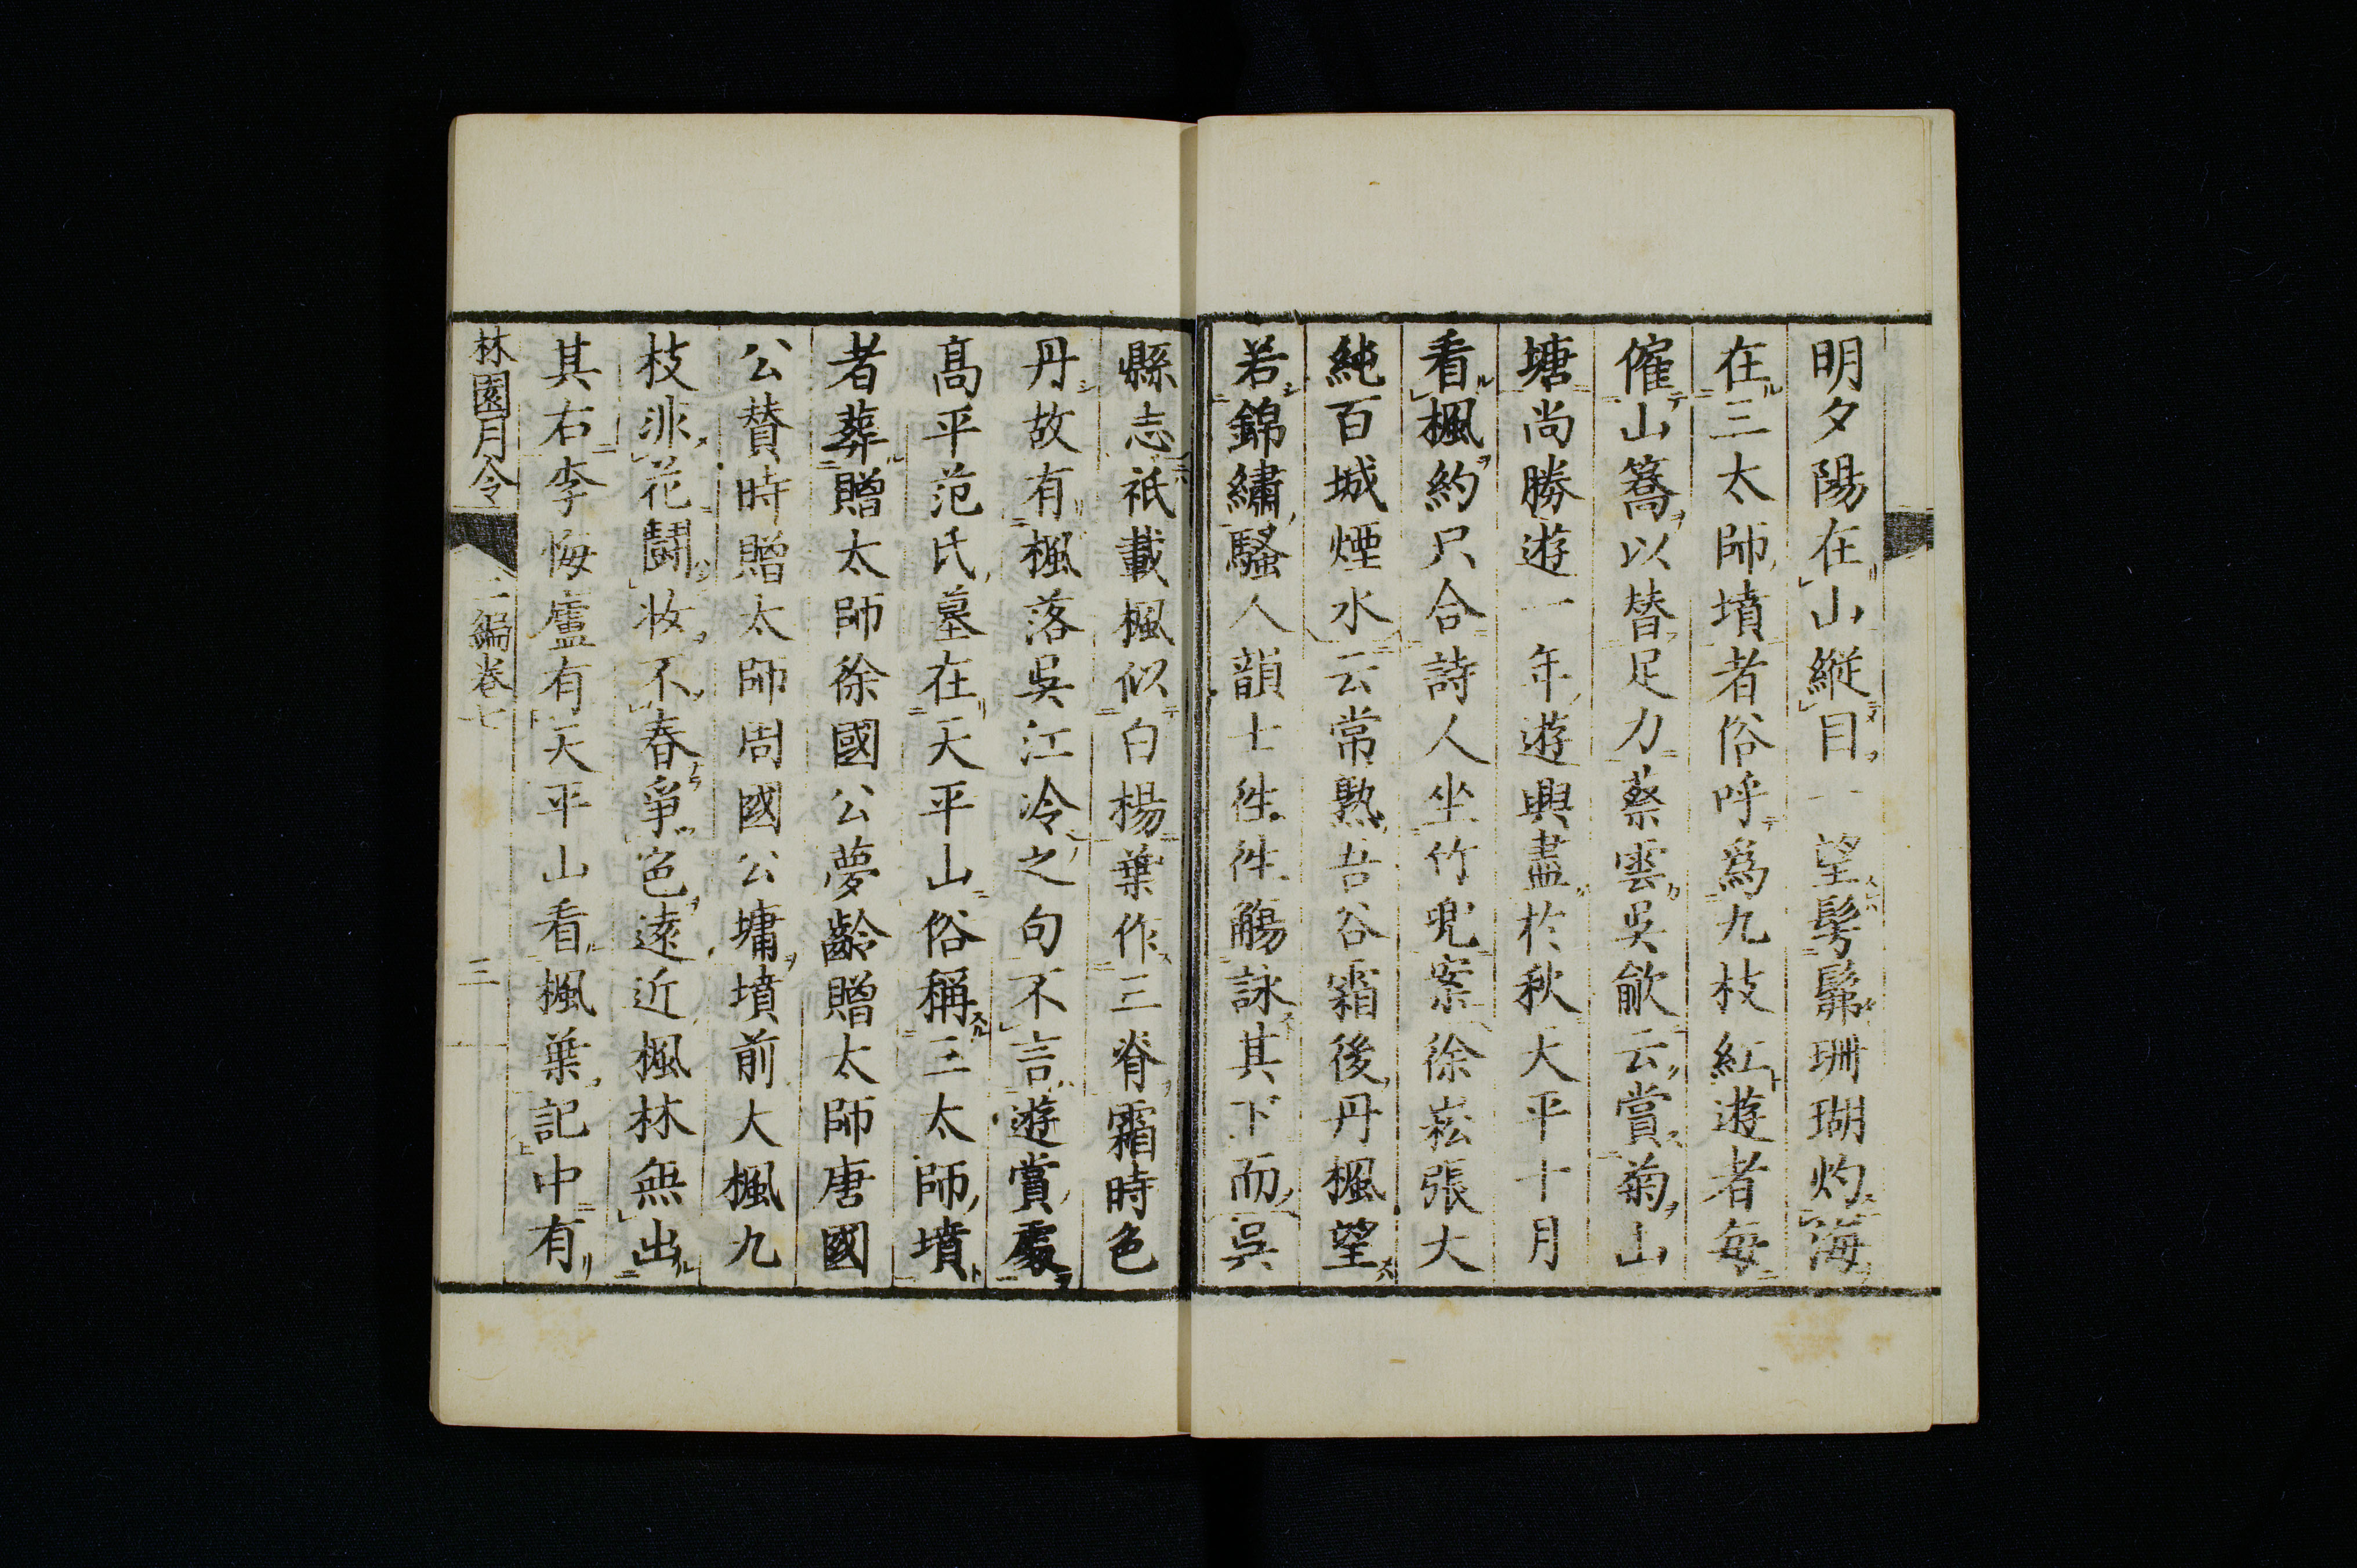 明夕陽在山縱目一望髣髴珊瑚灼海
在三太師墳者俗呼爲九枝紅遊者每
僱山簥以替足力蔡雲吳歈云賞菊山
塘尚勝遊一年遊興盡於秋天平十月
看楓約只合詩人坐竹兜案徐崧張大
純百城煙水云常熟吾谷霜後丹楓望
若錦繡騷人韻士徃徃觴詠其下而吳
縣志祇載楓似白楊葉作三脊霜時色
丹故有楓落吳江冷之句不言遊賞處
高平范氏墓在天平山俗稱三太師墳
者葬贈太師徐國公夢齡贈太師唐國
公賛時贈太師周國公墉墳前大楓九
枝非花鬪妝不春爭色遠近楓林無出
其右李悔廬有天平山看楓葉記中有
林園月令 編卷七 三